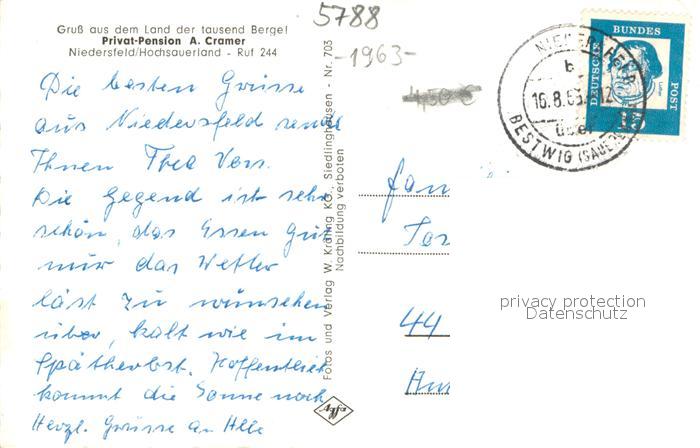 Gruß aus dem Land der tausend Berge!
Privat-Pension A. Cramer
Niedersfeld/Hochsauerland - Ruf 244
5788
-1963-
4,50 €
Die besten Grüsse
aus Niedersfeld sendet
Ihnen Thea
Die Gegend ist sehr
schön, das Essen gut
nur das Wetter
läst zu wünschen
über, kalt wie im
Spätherbst. Hoffentlich
kommt die Sonne noch
Herzl. Grüsse an Alle
Fotos und Verlag W. Kräling KG., Siedlinghausen - Nr. 703
Nachbildung verboten
Agfa
DEUTSCHE
BUNDES
POST
b
16.8.63
über
BESTWIG (SAUERL
44
privacy protection
Datenschutz